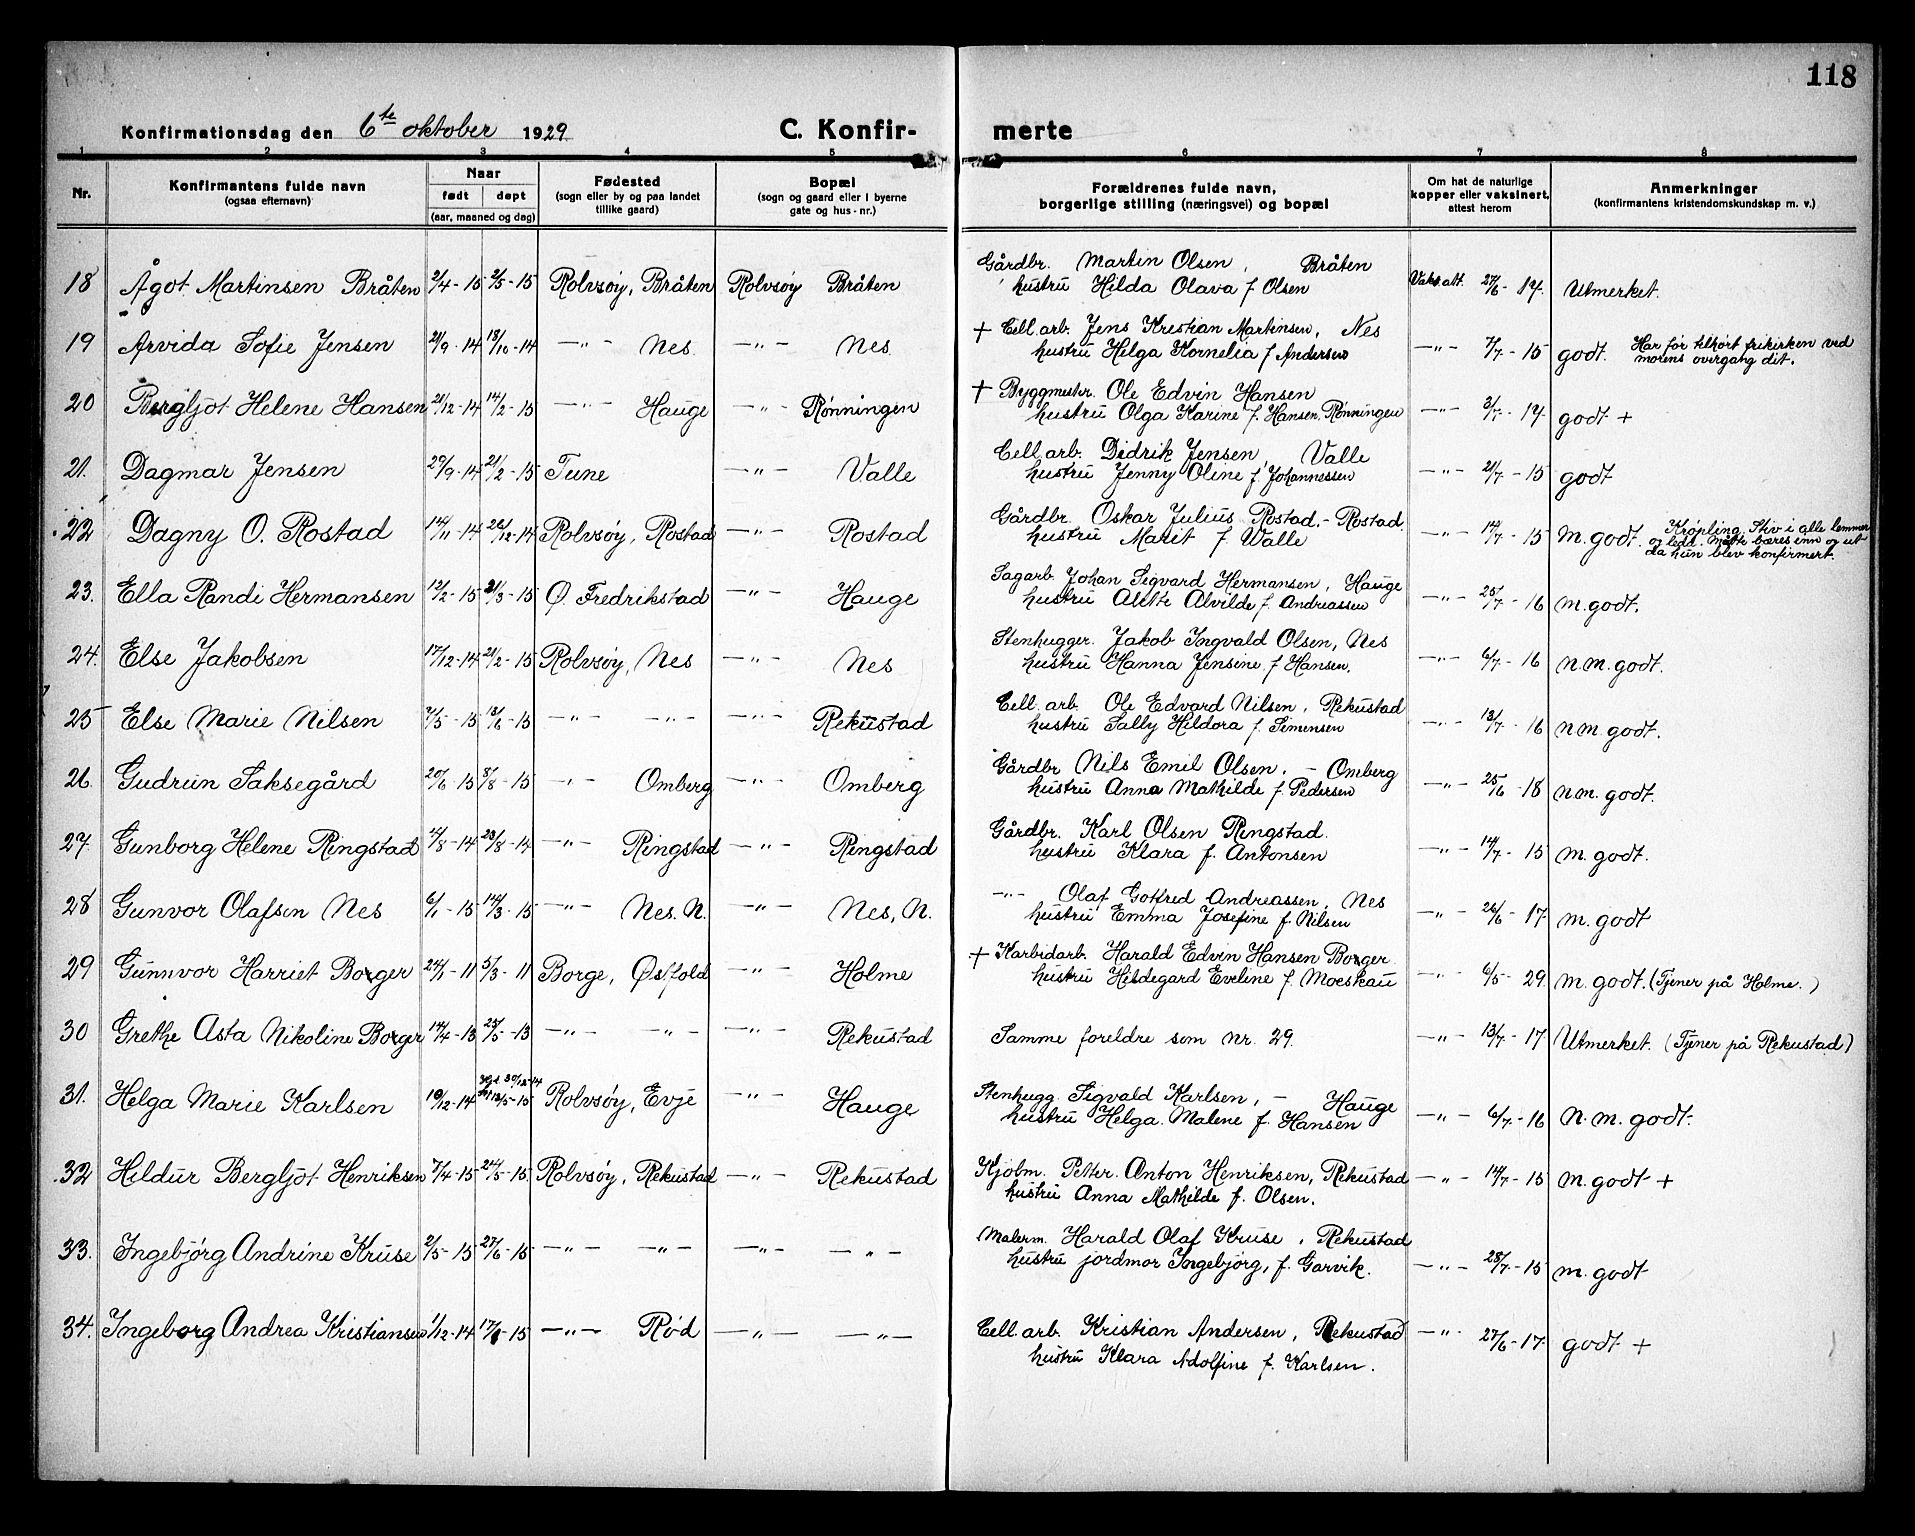 118
Konfirmationsdag den 6te oktober 1929. C. Konfir- merte
1 2 3 4 5 6 7 8
Nr. Konfirmantens fulde navn (ogsaa efternavn) Naar født døpt (aar, maaned og dag) Fødested (sogn eller by og paa landet tillike gaard) Bopæl (sogn og gaard eller i byerne gate og hus-nr.) Forældrenes fulde navn, borgerlige stilling (næringsvei) og bopæl Om hat de naturlige kopper eller vaksinert, attest herom Anmerkninger (konfirmantens kristendomskundskap m. v.)
18 Ågot Martinsen Bråten 2/4-15 2/5-15 Rolvsøy, Bråten Rolvsøy Bråten Gårdbr. Martin Olsen, Bråten Vaks.att. 27/6-17. Utmerket.
hustru Hilda Olava f Olsen
19 Arvida Sofie Jensen 21/9-14 18/10-14 -"- Nes. -"- Nes. + Cell.arb. Jens Kristian Martinsen, Nes -"- 7/7-15 godt. Har før tilhørt frikirken ved
hustru Helga Kornelia f Andersen morens overgang dit.
20 Bergljot Helene Hansen 21/12-14 14/2-15 -"- Hauge -"- Rønningen + Byggmestr. Ole Edvin Hansen -"- 3/7-17. godt +
hustru Olga Karine f. Hansen, Rønningen
21. Dagmar Jensen 29/9-14 21/2-15 Tune -"- Valle Cell.arb. Didrik Jensen, Valle -"- 21/7-15 godt
hustru Jenny Oline f. Johannessen
22 Dagny O. Rostad 14/11-14 26/12-14 Rolvsøy, Rostad -"- Rostad Gårdbr. Oskar Julius Rostad.- Rostad. -"- 14/7-15 m.godt. Krøpling. Stiv i alle lemmer
hustru Marit f. Walle og ledd. Måtte bæres inn og ut
da hun blev konfirmert.
23. Ella Randi Hermansen 12/2-15 21/3-15 Ø. Fredrikstad -"- Hauge Sagarb. Johan Sigvard Hermansen, Hauge -"- 25/7-16 m.godt.
hustru Alette Alvilde f. Andreassen
24. Else Jakobsen 17/12-14 21/2-15 Rolvsøy, Nes -"- Nes Stenhugger. Jakob Ingvald Olsen, Nes -"- 6/7-16 n.m.godt.
hustru Hanna Jensine f Hansen.
25 Else Marie Nilsen 7/5-15 13/6-15 -"- -"- -"- Rekustad Cell. arb. Ole Edvard Nilsen, Rekustad -"- 13/7-16 n.m.godt.
hustru Sally Hildora f. Simensen
26. Gudrun Saksegård 20/6-15 8/8-15 -"- Omberg -"- Omberg Gårdbr Nils Emil Olsen, - Omberg -"- 25/6-18 n.m.godt.
hustru Anna Mathilde f. Pedersen
27. Gunborg Helene Ringstad 11/8-14 23/8-14 -"- Ringstad -"- Ringstad Gårdbr. Karl Olsen Ringstad. -"- 14/7-15 m.godt.
hustru Klara f. Antonsen
28 Gunvor Olafsen Nes 6/1-15 14/3-15 -"- Nes. N. -"- Nes, N. -"- Olaf Gotfred Andreassen, Nes -"- 26/6-17. m.godt
hustru Emma Josefine f. Nilsen
29 Gunnvor Harriet Borger 24/1-11 5/3-11 Borge, Østfold -"- Holme + Karbidarb. Harald Edvin Hansen Borger -"- 6/5-29. m.godt. (Tjener på Holme.)
hustru Hildegard Eveline f. Moeskau
30 Grethe Asta Nikoline Borger 14/4-13 25/5-13 -"- -"- -"- Rekustad Samme foreldre som nr. 29. -"- 13/7-17 Utmerket. (Tjener på Rekustad)
31. Helga Marie Karlsen 10/12-14 Hjd. 30/12-14 13/5-15 Rolvsøy, Evje -"- Hauge Stenhugg. Sigvald Karlsen, - Hauge -"- 6/7-16 n.m.godt.
hustru Helga. Malene f. Hansen
32 Hildur Bergljot Henriksen 7/4-15 24/5-15 Rolvsøy, Rekustad -"- Rekustad Kjøbm. Petter Anton Henriksen, Rekustad -"- 14/7-15 m.godt +
hustru Anna Mathilde f. Olsen.
33. Ingebjørg Andrine Kruse 2/5-15 27/6-15 -"- -"- -"- -"- Malerm. Harald Olaf Kruse, Rekustad -"- 28/7-15 m.godt
hustru jordmor Ingebjørg, f. Garvik.
34. Ingeborg Andrea Kristiansen 1/12-14 17/1-15 -"- Rød -"- -"- Cell.arb. Kristian Andersen, Rekustad -"- 27/6-17. godt +
hustru Klara Adolfine f. Karlsen.